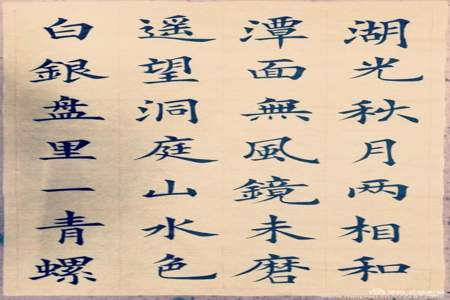 湖光秋月两相和
潭面無風鏡未磨
遥望洞庭山水色
白銀盘里一青螺